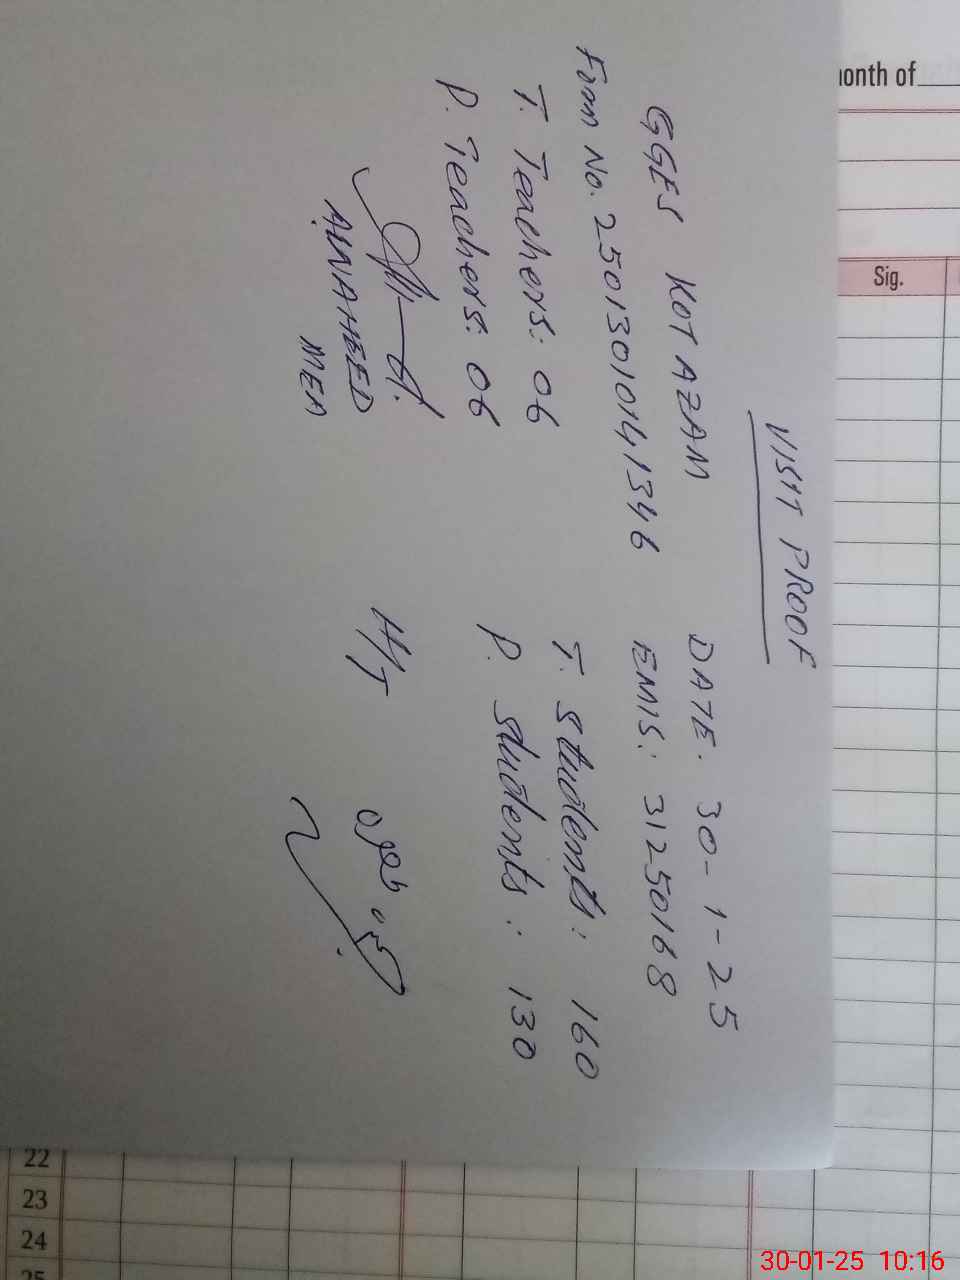 VISIT PROOF
GGES KOT AZAM DATE. 30-1-25
Form No. 25013010141346 EMIS: 31250168
T. Teachers: 06 T. Students: 160
P. Teachers: 06 P. Students: 130
H/T
MEA
month of
Sig.
22
23
24
25
30-01-25 10:16